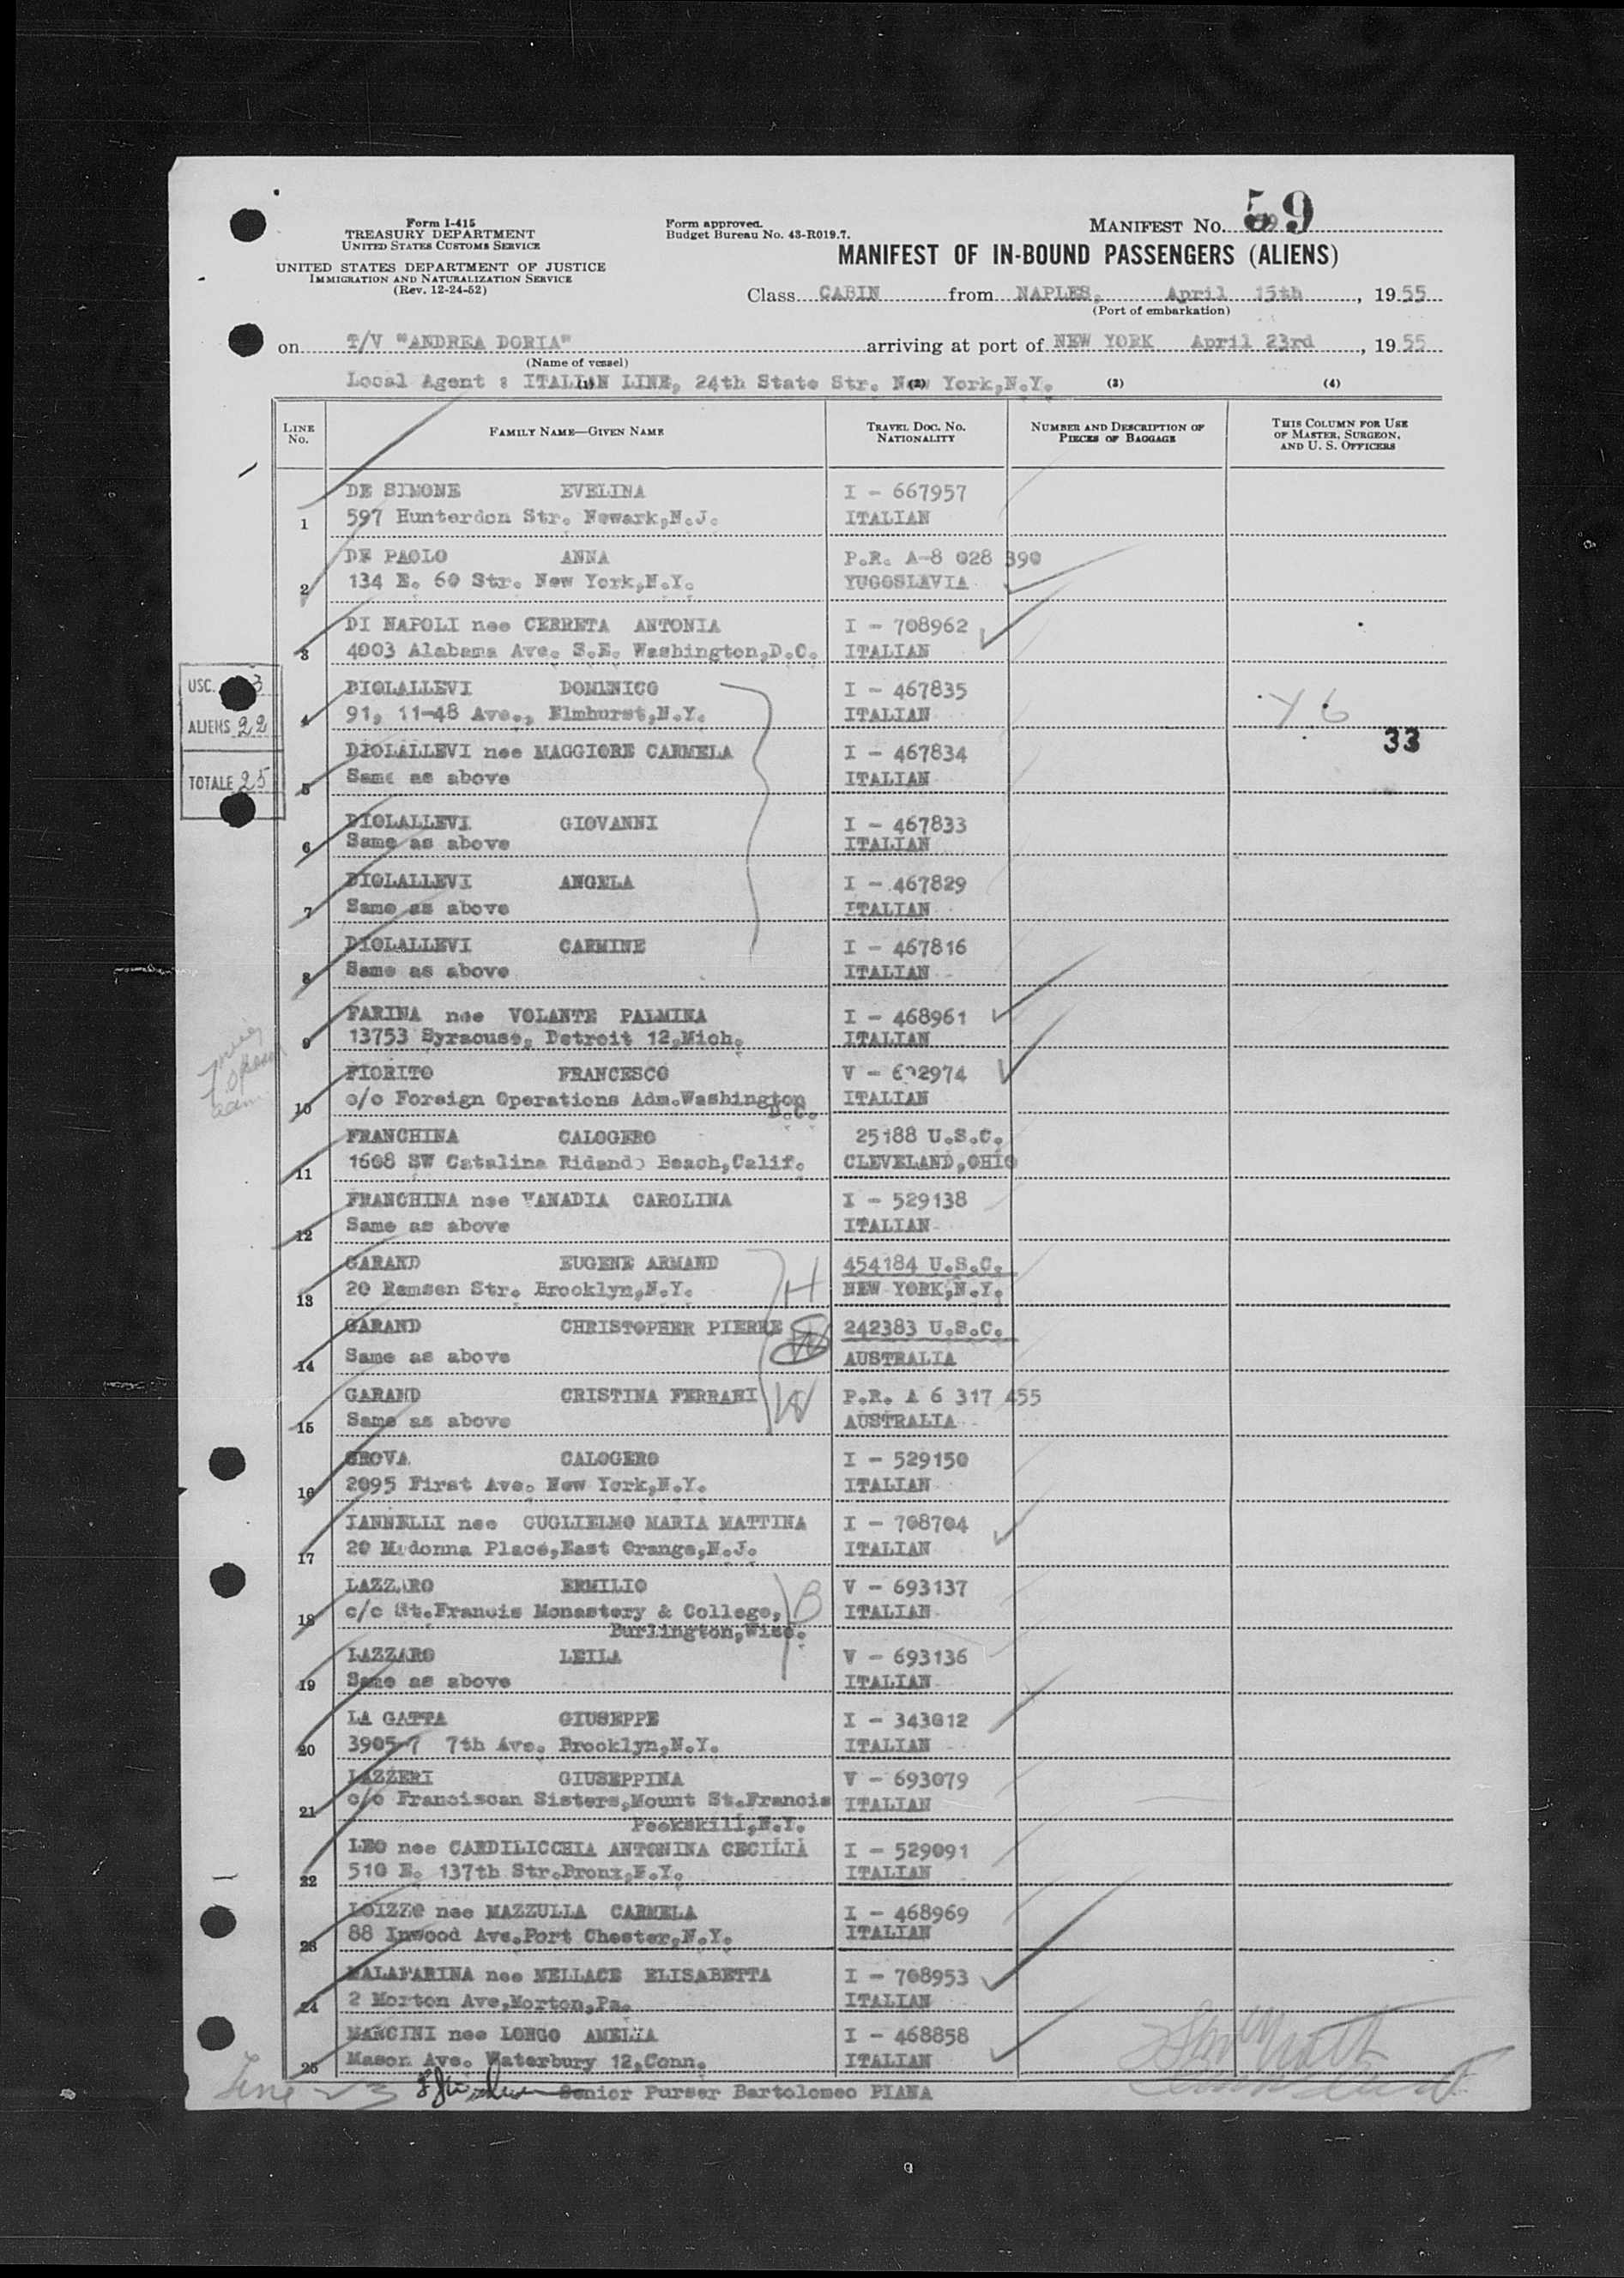 Form I-415
TREASURY DEPARTMENT
UNITED STATES CUSTOMS SERVICE
UNITED STATES DEPARTMENT OF JUSTICE
IMMIGRATION AND NATURALIZATION SERVICE
(Rev. 12-24-52)
Form approved.
Budget Bureau No. 43-R019.7.
MANIFEST No. 59
MANIFEST OF IN-BOUND PASSENGERS (ALIENS)
Class CABIN from NAPLES, April 15th, 1955
(Port of embarkation)
on T/V "ANDREA DORIA" arriving at port of NEW YORK April 23rd, 1955
(Name of vessel)
Local Agent : ITALIAN LINE, 24th State Str. New York,N.Y.
(1) (2) (3) (4)
LINE No. FAMILY NAME—GIVEN NAME TRAVEL DOC. NO. NATIONALITY NUMBER AND DESCRIPTION OF PIECES OF BAGGAGE THIS COLUMN FOR USE OF MASTER, SURGEON, AND U. S. OFFICERS
DE SIMONE EVELINA I - 667957
1 597 Hunterdon Str. Newark,N.J. ITALIAN
DE PAOLO ANNA P.R. A-8 028 390
2 134 E. 60 Str. New York,N.Y. YUGOSLAVIA
DI NAPOLI nee CERRETA ANTONIA I - 708962
3 4003 Alabama Ave. S.E. Washington,D.C. ITALIAN
USC. 3
ALIENS 22
TOTALE 25
DIOLALLEVI DOMENICO I - 467835
4 91, 11-48 Ave., Elmhurst,N.Y. ITALIAN
33
DIOLALLEVI nee MAGGIORE CARMELA I - 467834
5 Same as above ITALIAN
DIOLALLEVI GIOVANNI I - 467833
6 Same as above ITALIAN
DIOLALLEVI ANGELA I - 467829
7 Same as above ITALIAN
DIOLALLEVI CARMINE I - 467816
8 Same as above ITALIAN
FARINA nee VOLANTE PALMINA I - 468961
9 13753 Syracuse, Detroit 12,Mich. ITALIAN
FIORITO FRANCESCO V -
10 c/o Foreign Operations Adm.Washington D.C. ITALIAN
FRANCHINA CALOGERO 25188 U.S.C.
11 1608 SW Catalina Ridando Beach,Calif. CLEVELAND,OHIO
FRANCHINA nee VANADIA CAROLINA I - 529138
12 Same as above ITALIAN
GARAND EUGENE ARMAND H 454184 U.S.C.
13 20 Remsen Str. Brooklyn,N.Y. NEW YORK,N.Y.
GARAND CHRISTOPHER PIERRE 242383 U.S.C.
14 Same as above AUSTRALIA
GARAND CRISTINA FERRARI W P.R. A 6 317 455
15 Same as above AUSTRALIA
GROVA CALOGERO I - 529150
16 2095 First Ave. New York,N.Y. ITALIAN
IANNELLI nee GUGLIELMO MARIA MATTINA I - 708704
17 20 Madonna Place,East Orange,N.J. ITALIAN
LAZZARO ERMILIO V - 693137
18 c/o St.Francis Monastery & College, B ITALIAN
Burlington,Wisc.
LAZZARO LEILA V - 693136
19 Same as above ITALIAN
LA GATTA GIUSEPPE I - 343012
20 3905-7 7th Ave. Brooklyn,N.Y. ITALIAN
LAZZERI GIUSEPPINA V - 693079
21 c/o Franciscan Sisters,Mount St.Francis ITALIAN
Peekskill,N.Y.
LEO nee CARDILICCHIA ANTONINA CECILIA I - 529091
22 510 E. 137th Str.Bronx,N.Y. ITALIAN
LOIZZO nee MAZZULLA CARMELA I - 468969
23 88 Inwood Ave.Port Chester,N.Y. ITALIAN
MALAFARINA nee NELLACE ELISABETTA I - 708953
24 2 Morton Ave,Morton,Pa. ITALIAN
MANCINI nee LONGO AMELIA I - 468858
25 Mason Ave. Waterbury 12,Conn. ITALIAN
Senior Purser Bartolomeo PIANA